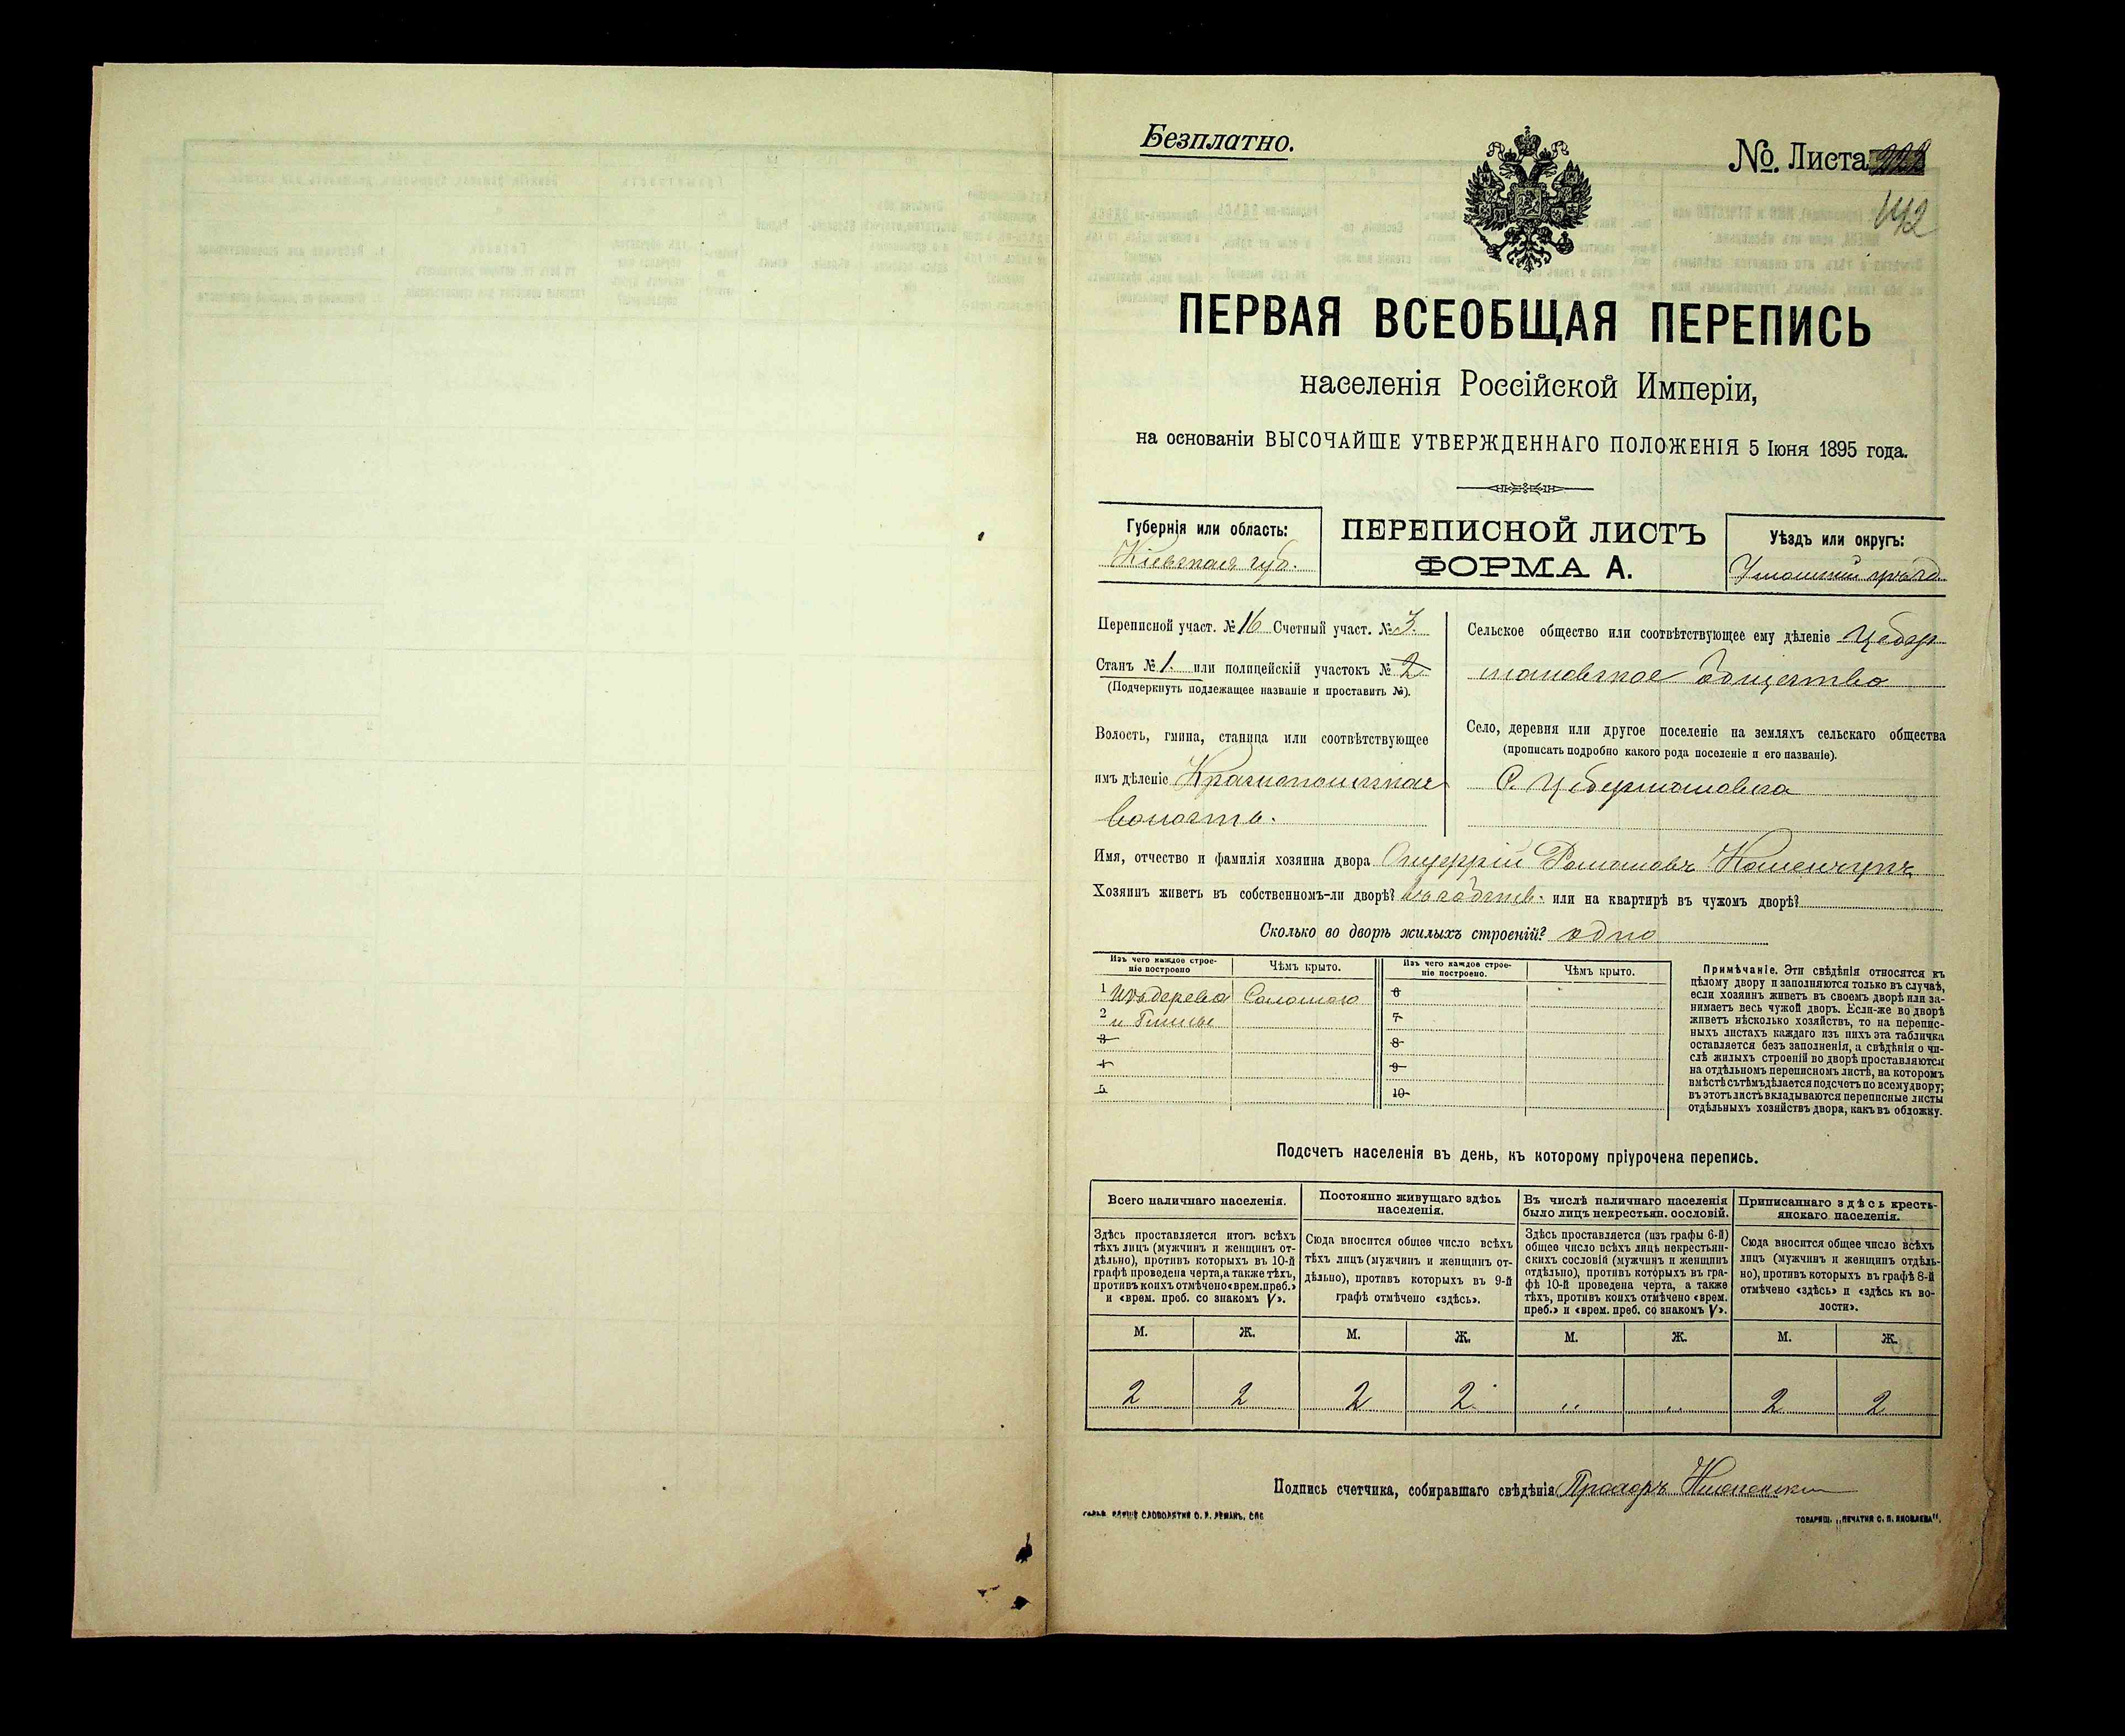 Безплатно.
№. Листа
142
ПЕРВАЯ ВСЕОБЩАЯ ПЕРЕПИСЬ
населенія Россійской Имперіи,
на основаніи ВЫСОЧАЙШЕ УТВЕРЖДЕННАГО ПОЛОЖЕНІЯ 5 Іюня 1895 года.
Губернія или область:
Кіевская губ.
ПЕРЕПИСНОЙ ЛИСТЪ
ФОРМА А.
Уѣздъ или округъ:
Уманскій уѣздъ
Переписной участ. № 16 Счетный участ. № 3.
Станъ № 1. или полицейскій участокъ № 2
(Подчеркнуть подлежащее названіе и проставить №).
Волость, гмина, станица или соотвѣтствующее
имъ дѣленіе Краснопольская
волость.
Сельское общество или соотвѣтствующее ему дѣленіе Цебер
мановское общество
Село, деревня или другое поселеніе на земляхъ сельскаго общества
(прописать подробно какого рода поселеніе и его названіе).
С. Цебермановка
Имя, отчество и фамилія хозяина двора Романовъ
Хозяинъ живетъ въ собственномъ-ли дворѣ? въ собств. или на квартирѣ въ чужомъ дворѣ?
Сколько во дворѣ жилыхъ строеній? одно
Изъ чего каждое строе-
ніе построено
Чѣмъ крыто.
Изъ чего каждое строе-
ніе построено.
Чѣмъ крыто.
1 Изъ дерева Соломою 6
2 и глины 7
3 8
4 9
5 10
Примѣчаніе. Эти свѣдѣнія относятся къ
цѣлому двору и заполняются только въ случаѣ,
если хозяинъ живетъ въ своемъ дворѣ или за-
нимаетъ весь чужой дворъ. Если-же во дворѣ
живетъ нѣсколько хозяйствъ, то на перепис-
ныхъ листахъ каждаго изъ нихъ эта табличка
оставляется безъ заполненія, а свѣдѣнія о чи-
слѣ жилыхъ строеній во дворѣ проставляются
на отдѣльномъ переписномъ листѣ, на которомъ
вмѣстѣ съ тѣмъ дѣлается подсчетъ по всему двору;
въ этотъ листъ вкладываются переписные листы
отдѣльныхъ хозяйствъ двора, какъ въ обложку.
Подсчетъ населенія въ день, къ которому пріурочена перепись.
Всего наличнаго населенія.
Постоянно живущаго здѣсь
населенія.
Въ числѣ наличнаго населенія
было лицъ некрестьян. сословій.
Приписаннаго здѣсь кресть-
янскаго населенія.
Здѣсь проставляется итогъ всѣхъ
тѣхъ лицъ (мужчинъ и женщинъ от-
дѣльно), противъ которыхъ въ 10-й
графѣ проведена черта, а также тѣхъ,
противъ коихъ отмѣчено «врем. преб.»
и «врем. преб. со знакомъ V».
Сюда вносится общее число всѣхъ
тѣхъ лицъ (мужчинъ и женщинъ от-
дѣльно), противъ которыхъ въ 9-й
графѣ отмѣчено «здѣсь».
Здѣсь проставляется (изъ графы 6-й)
общее число всѣхъ лицъ некрестьян-
скихъ сословій (мужчинъ и женщинъ
отдѣльно), противъ которыхъ въ гра-
фѣ 10-й проведена черта, а также
тѣхъ, противъ коихъ отмѣчено «врем.
преб.» и «врем. преб. со знакомъ V».
Сюда вносится общее число всѣхъ
лицъ (мужчинъ и женщинъ отдѣль-
но), противъ которыхъ въ графѣ 8-й
отмѣчено «здѣсь» и «здѣсь къ во-
лости».
М. Ж. М. Ж. М. Ж. М. Ж.
2 2 2 2 „ „ 2 2
Подпись счетчика, собиравшаго свѣдѣнія
СЛОВОЛИТНИ О. И. ЛЕМАНЪ, СПБ
ТОВАРИЩ. „ПЕЧАТНЯ С. П. ЯКОВЛЕВА“.